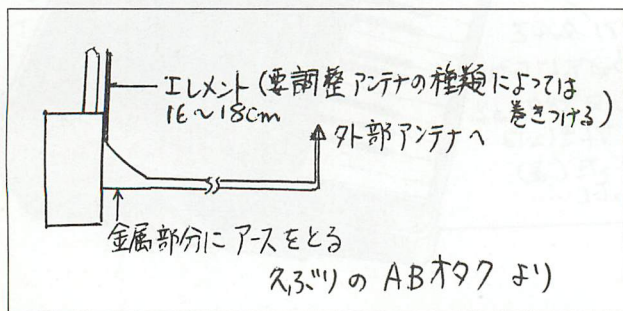 エレメント(要調整 アンテナの種類によっては
巻きつける)
16〜18cm
外部アンテナへ
金属部分にアースをとる
久ぶりの ABオタク より